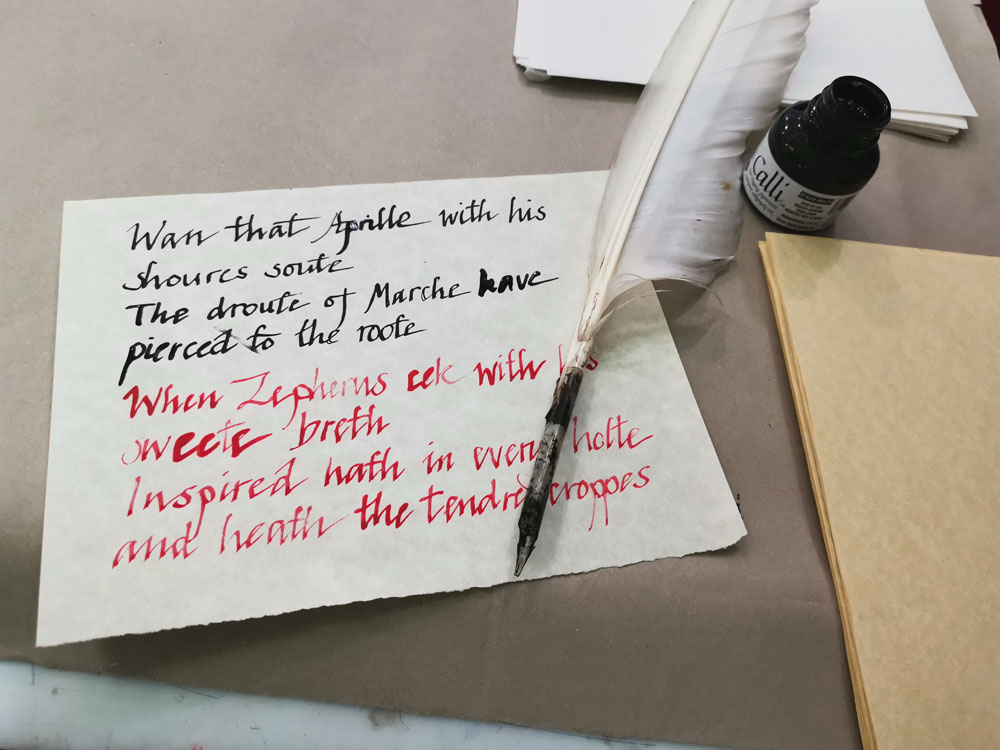 Wan that Aprille with his
shoures soute
The droute of Marche have
pierced to the roote
When Zepherus eek with his
sweete breth
Inspired hath in every holte
and heath the tendre croppes
Calli